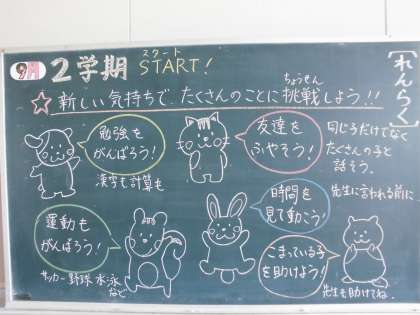 9月
２学期
スタート
START!
☆新しい気持ちで、たくさんのことに挑戦しよう!!
ちょうせん
【れんらく】
勉強を
がんばろう!
漢字も計算も
友達を
ふやそう!
同じろだけでなく
たくさんの子と
話そう。
時間を
見て動こう!
先生に言われる前に…
運動も
がんばろう!
サッカー 野球 水泳
など
こまっている子
を助けよう!
先生も助けてね。